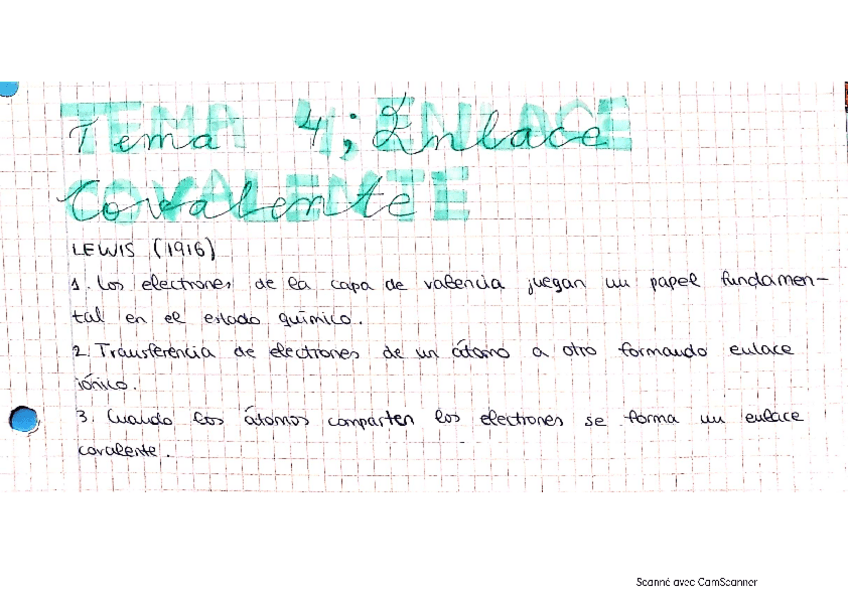 Tema 4; Enlace
Covalente
LEWIS (1916)
1. Los electrones de la capa de valencia juegan un papel fundamen-
tal en el estado químico.
2. Transferencia de electrones de un átomo a otro formando enlace
iónico.
3. Cuando los átomos comparten los electrones se forma un enlace
covalente.
Scanné avec CamScanner